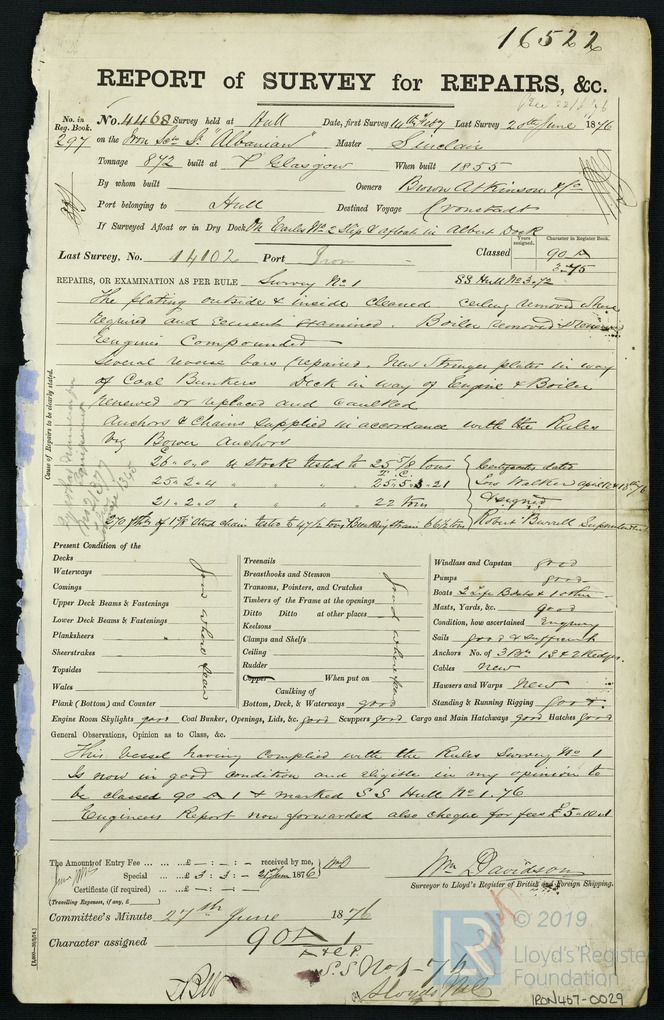 16522
REPORT of SURVEY for REPAIRS, &c.
No. in Reg. Book. No. 4468 Survey held at Hull Date, first Survey 14th Feby Last Survey 20th June 1876
297 on the Iron Scw Sr "Albanian" Master Sinclair
Tonnage 872 built at P Glasgow When built 1855
By whom built Owners Brown Atkinson & Co
Port belonging to Hull Destined Voyage Cronstadt
If Surveyed Afloat or in Dry Dock On Earles No 2 Slip & afloat in Albert Dock
Years assigned. Character in Register Book.
Last Survey, No. 14102 Port Iron Classed 90 A
3-75
REPAIRS, OR EXAMINATION AS PER RULE Survey No 1 SS Hull No 3-72
The plating outside & inside cleaned ceiling removed where
required and cement examined. Boiler removed & renewed
Engines Compounded
Several reverse bars repaired. New Stringer plates in way
of Coal Bunkers Deck in way of Engine & Boiler
renewed or replaced and caulked
Anchors & Chains supplied in accordance with the Rules
Bower Anchors
26-0-0 stock tested to 25 5/8 tons Certificates dated
25-2-4 " " " 25-5-3-21
21-2-0 " " " 22 tons Signed
270 fths of 1 stud chain tested to 47½ tons Breaking strain 66½ tons Robert Burrell Superintendent
Cause of Repairs to be clearly stated.
Present Condition of the
Decks
Waterways
Comings
Upper Deck Beams & Fastenings
Lower Deck Beams & Fastenings
Planksheers "
Sheerstrakes
Topsides
Wales
Plank (Bottom) and Counter
Good where seen
Treenails
Breasthooks and Stemson
Transoms, Pointers, and Crutches
Timbers of the Frame at the openings
Ditto Ditto at other places
Keelsons
Clamps and Shelfs
Ceiling
Rudder
Copper When put on
Caulking of
Bottom, Deck, & Waterways good
Good where seen
Windlass and Capstan good
Pumps good
Boats 2 Life Boats & 1 other
Masts, Yards, &c. good
Condition, how ascertained Enquiry
Sails good & sufficient
Anchors No. of 3 Brs 1 S & 2 Kedges
Cables New
Hawsers and Warps New
Standing & Running Rigging good
Engine Room Skylights good Coal Bunker, Openings, Lids, &c. good Scuppers good Cargo and Main Hatchways good Hatches good
General Observations, Opinion as to Class, &c.
This vessel having complied with the Rules Survey No 1
Is now in good condition and eligible in my opinion to
be classed 90 A 1 & marked S S Hull No 1-76
Engineers Report now forwarded also cheque for fees £5
The Amount of Entry Fee ... ... ... £ — : — : — received by me,
Special ... ... £ 3 : 3 : — 21st June 1876
Certificate (if required) ... — £ — : — : —
(Travelling Expenses, if any, £ )
Wm Davidson
Surveyor to Lloyd's Register of British and Foreign Shipping.
Committee's Minute 27th June 1876
Character assigned 90 A 1
A & C.P.
S.S No 1-76
Lloyds
[2,000-30/3/74.]
LR © 2019
Lloyd's Register
Foundation
IRON467-0029